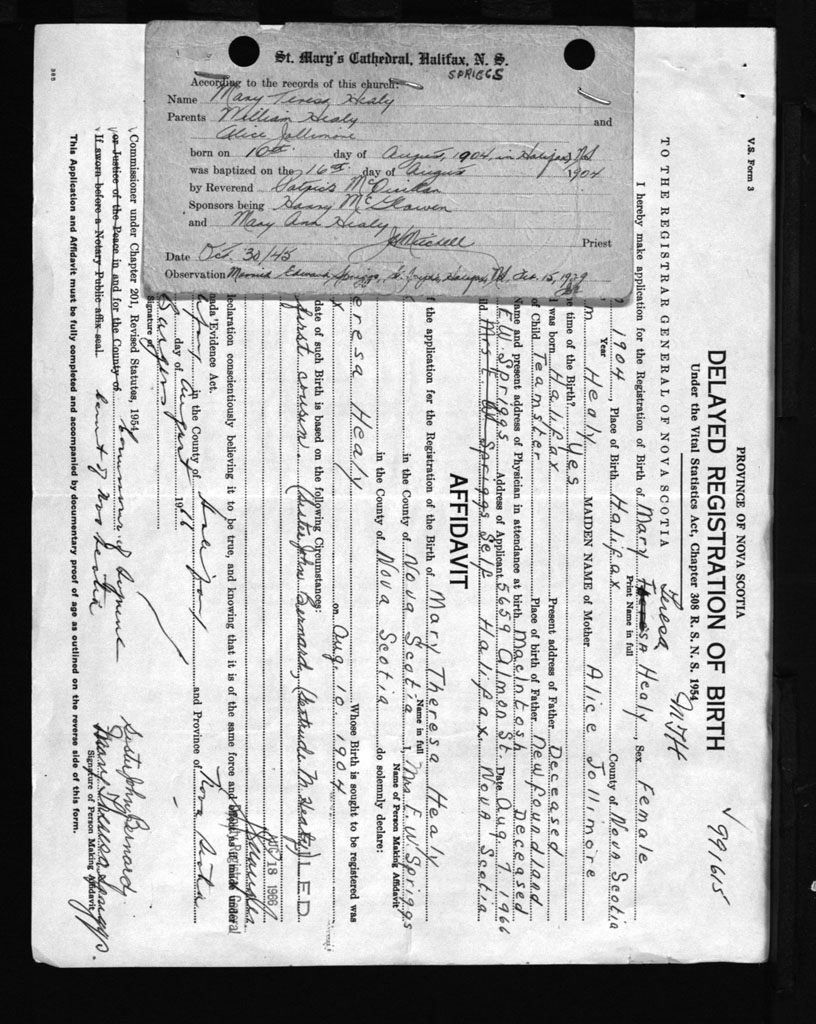 St. Mary's Cathedral, Halifax, N. S.
SPRIGGS
According to the records of this church:
Name Mary Teresa Healy
Parents William Healy and
Alice Jollimore
born on 10th day of August, 1904, in Halifax, N.S.
was baptized on the 16th day of August 1904
by Reverend
Sponsors being Harry
and Mary Ann Healy
Priest
Date Oct. 30/45
Observation Married Edward Spriggs, St. Halifax, N.S. Feb. 15, 1929
V.S. Form 3
PROVINCE OF NOVA SCOTIA
DELAYED REGISTRATION OF BIRTH
Under the Vital Statistics Act, Chapter 308 R. S. N. S. 1954
✓ 991615
TO THE REGISTRAR GENERAL OF NOVA SCOTIA
Teresa MTH
I hereby make application for the Registration of Birth of Mary Healy, Sex Female
Print Name in full
1904, Place of Birth Halifax County of Nova Scotia
Year
m Healy MAIDEN NAME of Mother Alice Jollimore
e time of the Birth? Yes
I was born Halifax Present address of Father Deceased
of Child Teamster Place of birth of Father Newfoundland
Name and present address of Physician in attendance at birth MacIntosh Deceased
E.W. Spriggs Address of Applicant 5659 Almon St. Date Aug. 9. 1966
ld Mrs E W Spriggs Self Halifax Nova Scotia
AFFIDAVIT
f the application for the Registration of the Birth of Mary Theresa Healy
Name in full
in the County of Nova Scotia I, Mrs. E. W. Spriggs
Name of Person Making Affidavit
in the County of Nova Scotia do solemnly declare:
eresa Healy Whose Birth is sought to be registered was
on Aug. 10 1904
date of such Birth is based on the following Circumstances:
first cousin. (Sister John Bernard, (Gertrude M. Healy)
FILED
AUG 18 1966
eclaration conscientiously believing it to be true, and knowing that it is of the same force and
nada Evidence Act.
in the County of Halifax and Province of Nova Scotia
day of August 1966
Signature of
Commissioner under Chapter 201, Revised Statutes, 1954
or Justice of the Peace in and for the County of
If sworn before a Notary Public affix seal
Sister John Bernard
Mary Theresa Spriggs.
Signature of Person Making Affidavit
This Application and Affidavit must be fully completed and accompanied by documentary proof of age as outlined on the reverse side of this form.